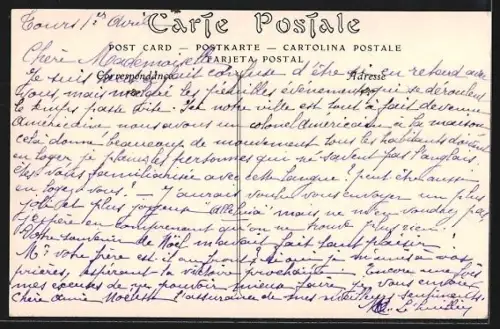 Tours 1er Avril
Carte Postale
POST CARD — POSTKARTE — CARTOLINA POSTALE
TARJETA POSTAL
Correspondance
Adresse
Chère Mademoiselle
Je suis tout à fait confuse d'être si en retard avec
vous, mais malgré les pénibles évènements qui se déroulent
le temps passe vite. Ici notre ville est tout à fait devenue
Américaine nous avons un colonel Américain à la maison
cela donne beaucoup de mouvement tous les habitants doivent
en loger, je plains les personnes qui ne savent pas l'anglais.
Êtes vous familiarisée avec cette langue? peut être aussi
en logez vous! — J'aurais voulu vous envoyer un plus
joli et plus joyeux "alleluia" mais ne m'en voudrez pas
j'espère en comprenant qu'on ne trouve plus rien!
Votre souvenir de Noël m'avait fait tant plaisir!
Mr votre frère est il au front? si oui je m'unis à vos
prières, espérant la victoire prochaine. Encore une fois
mes excuses de ne pouvoir mieux faire je vous envoie
Chère amie l'assurance de mes meilleurs sentiments.